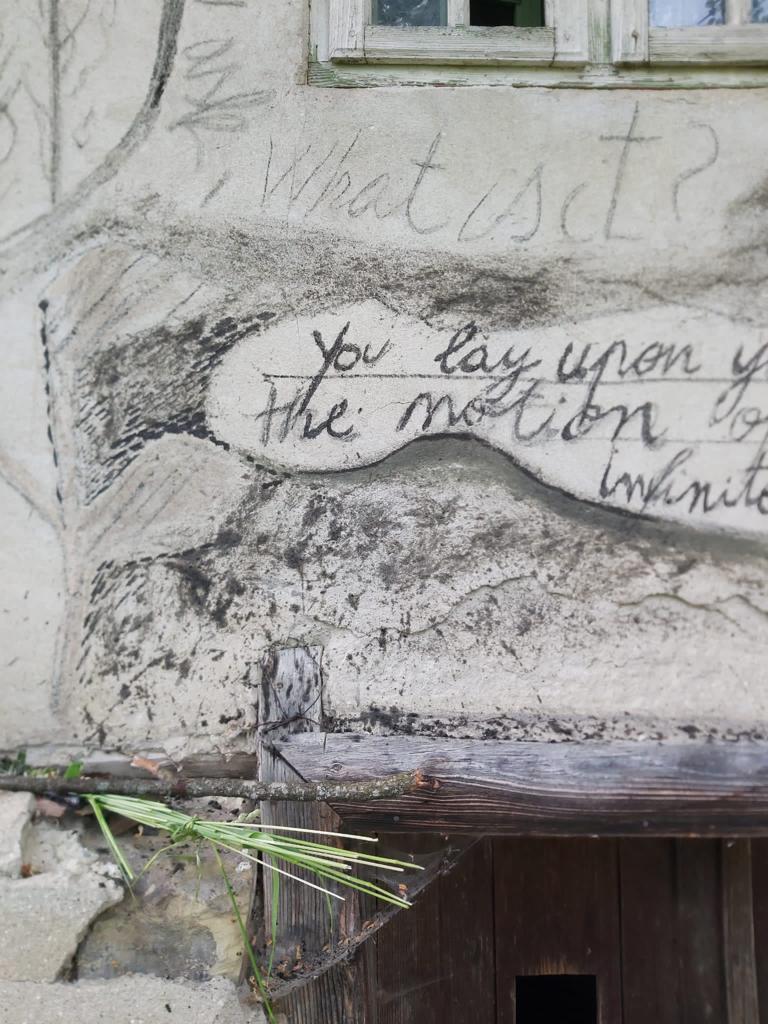 What is it?
You lay upon y
the motion o
infinit